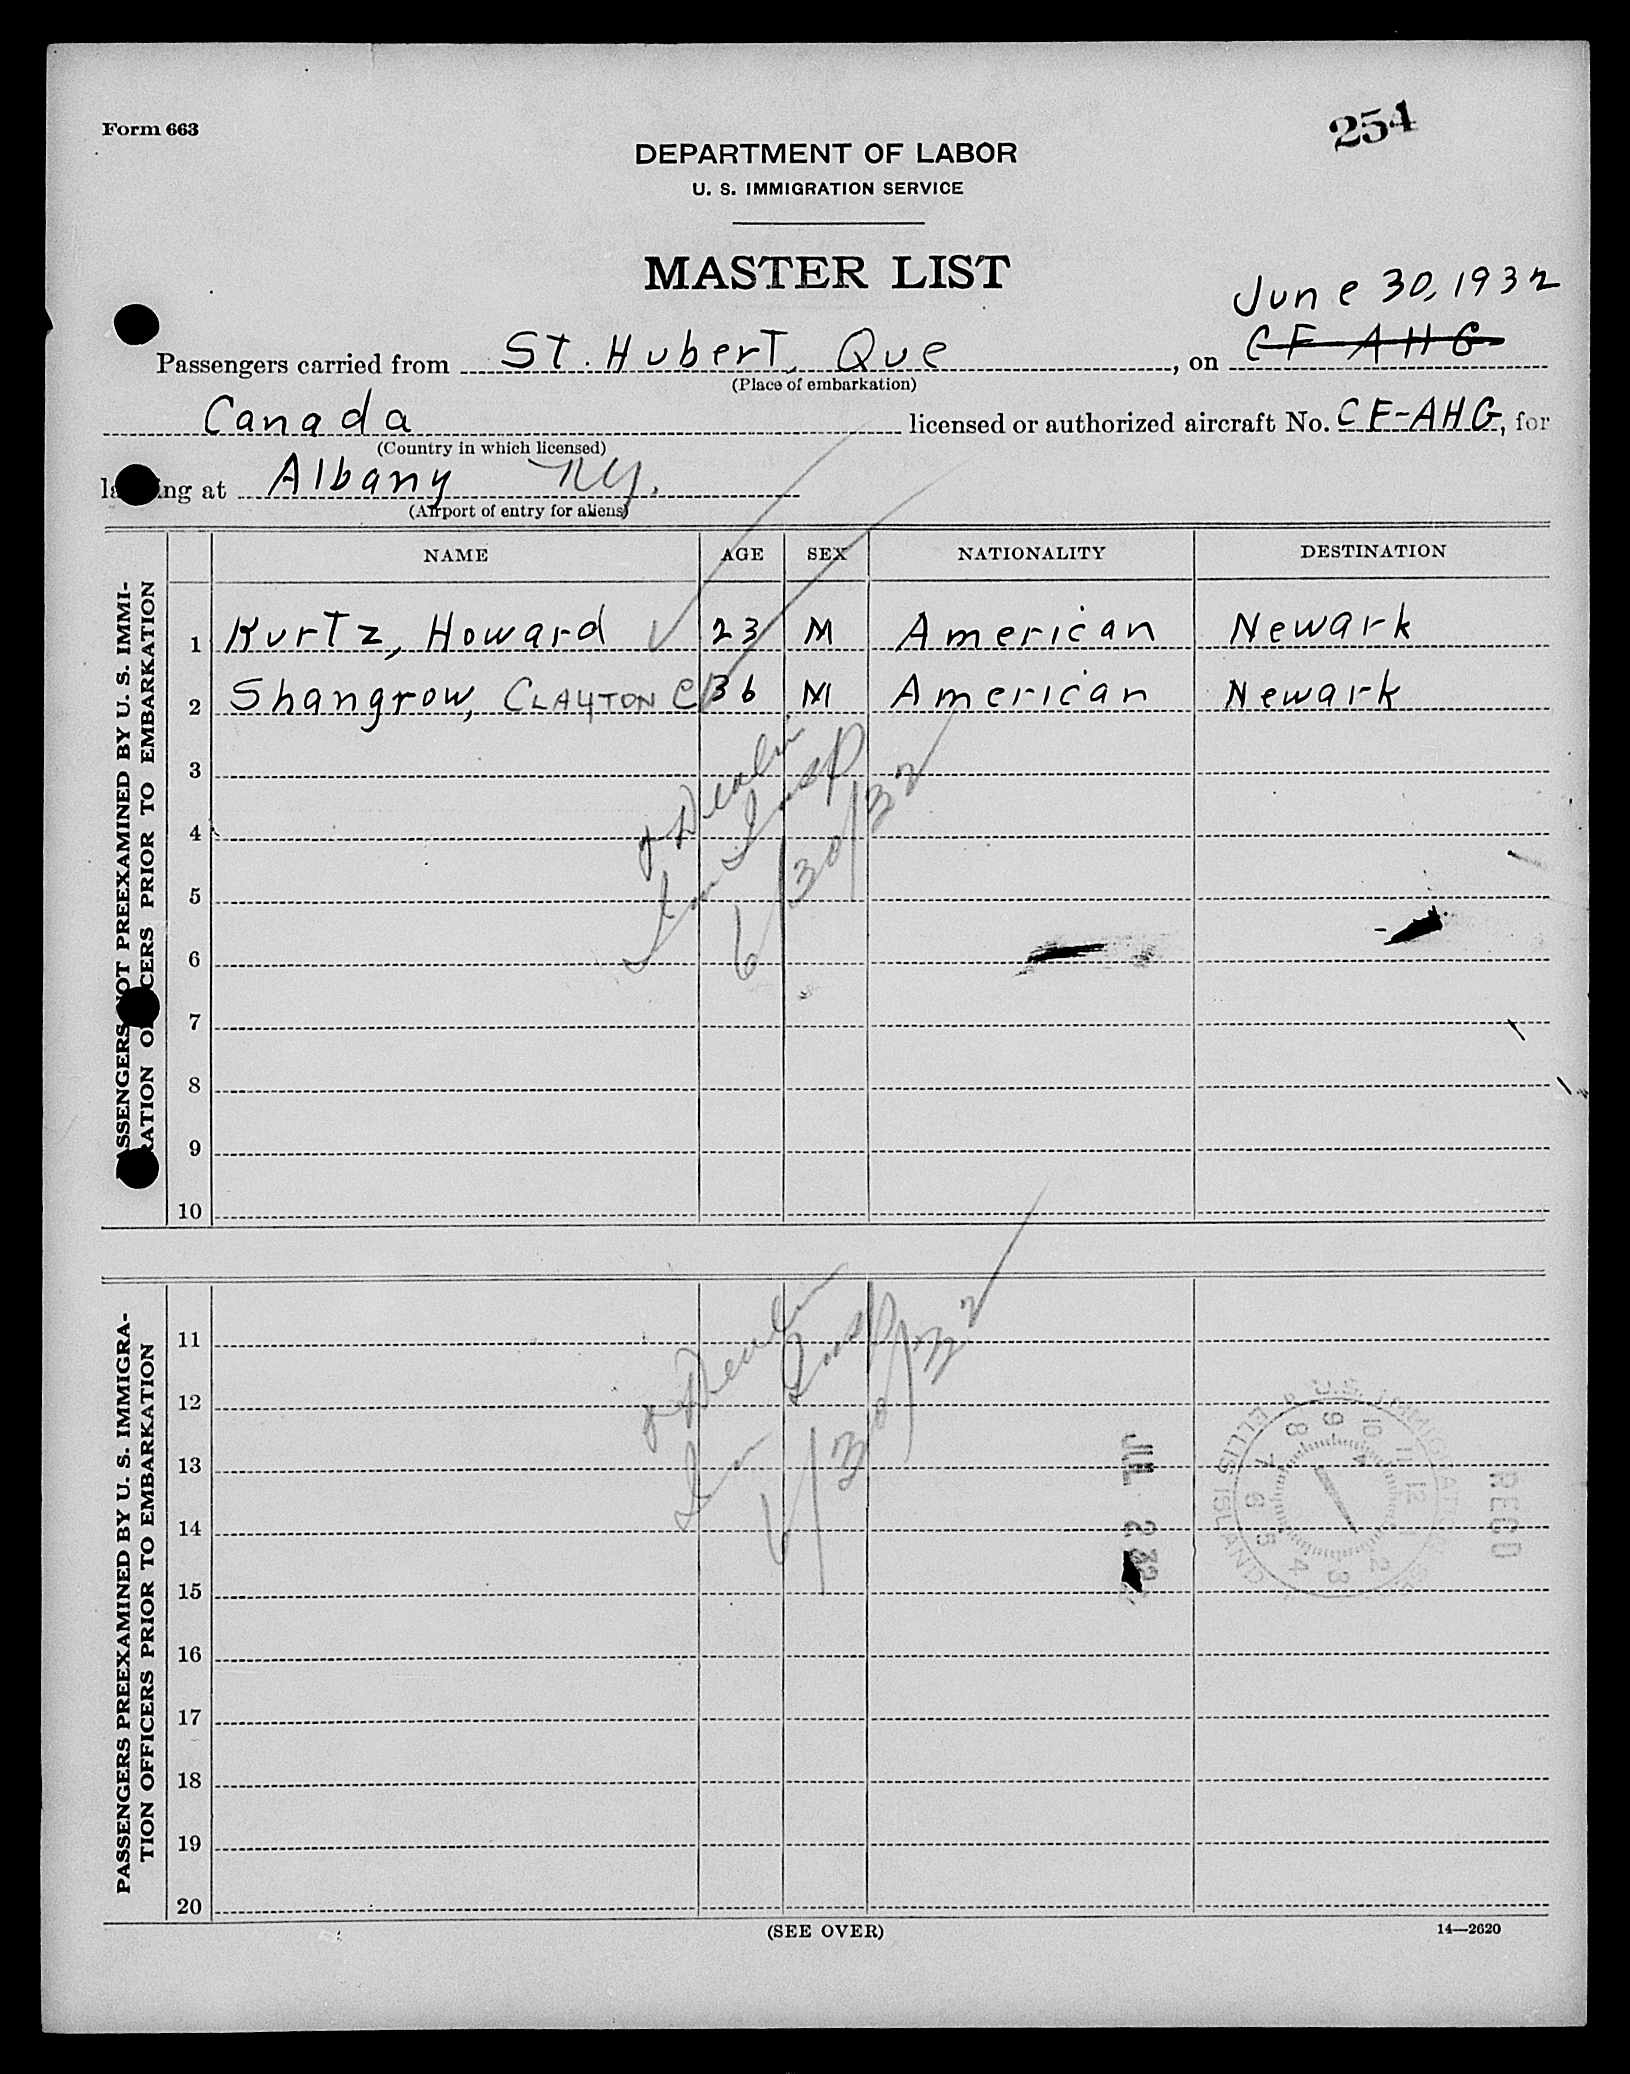 Form 663
254
DEPARTMENT OF LABOR
U. S. IMMIGRATION SERVICE
MASTER LIST
June 30, 1932
Passengers carried from St. Hubert, Que, on CF-AHG
(Place of embarkation)
Canada licensed or authorized aircraft No. CF-AHG, for
(Country in which licensed)
la ng at Albany NY.
(Airport of entry for aliens)
NAME AGE SEX NATIONALITY DESTINATION
ASSENGERS OT PREEXAMINED BY U. S. IMMI-
RATION O CERS PRIOR TO EMBARKATION
1 Kurtz, Howard 23 M American Newark
2 Shangrow, CLAYTON C 36 M American Newark
3
4
5
6
7
8
9
10
Imm Insp
6/30/32
PASSENGERS PREEXAMINED BY U. S. IMMIGRA-
TION OFFICERS PRIOR TO EMBARKATION
11
12
13
14
15
16
17
18
19
20
Imm Insp
6/30/32
JUL 2 32
U.S. IMMIGRATION
ELLIS ISLAND
7 8 9 10 11 12 1 2 3 4 5 6
RECD
(SEE OVER)
14—2620